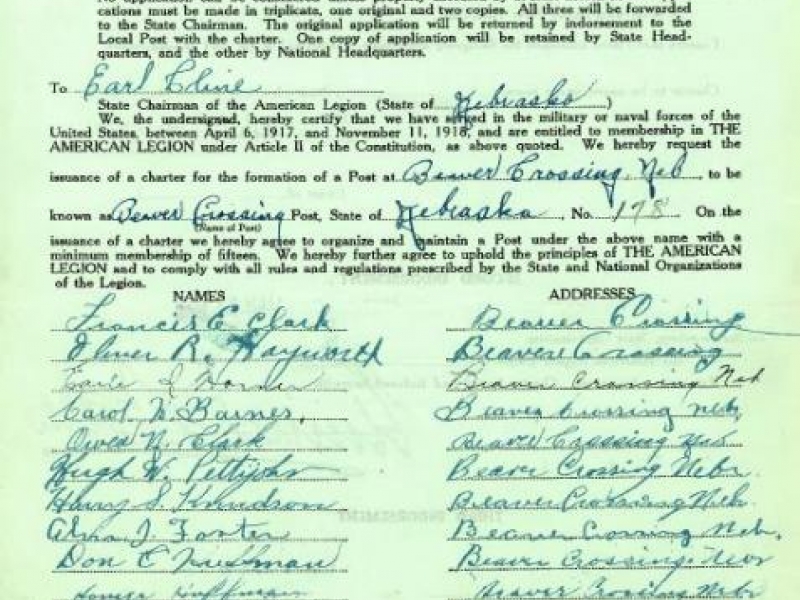 cations must be made in triplicate, one original and two copies. All three will be forwarded
to the State Chairman. The original application will be returned by indorsement to the
Local Post with the charter. One copy of application will be retained by State Head-
quarters, and the other by National Headquarters.
To Earl Cline
State Chairman of the American Legion (State of Nebraska)
We, the undersigned, hereby certify that we have served in the military or naval forces of the
United States, between April 6, 1917, and November 11, 1918, and are entitled to membership in THE
AMERICAN LEGION under Article II of the Constitution, as above quoted. We hereby request the
issuance of a charter for the formation of a Post at Beaver Crossing, Neb, to be
known as Beaver Crossing Post, State of Nebraska, No. 178 On the
(Name of Post)
issuance of a charter we hereby agree to organize and maintain a Post under the above name with a
minimum membership of fifteen. We hereby further agree to uphold the principles of THE AMERICAN
LEGION and to comply with all rules and regulations prescribed by the State and National Organizations
of the Legion.
NAMES ADDRESSES
Francis E. Clark Beaver Crossing
Elmer R. Hayworth Beaver Crossing
Earle Beaver Crossing Neb
Carol N. Barnes, Beaver Crossing Neb,
Owen N. Clark Beaver Crossing Neb
Hugh W. Pettijohn Beaver Crossing Nebr.
Harry S. Knudson Beaver Crossing Neb.
J. Foster Beaver Crossing Neb.
Don C Beaver Crossing, Nebr
Homer Huffman Beaver Crossing Nebr